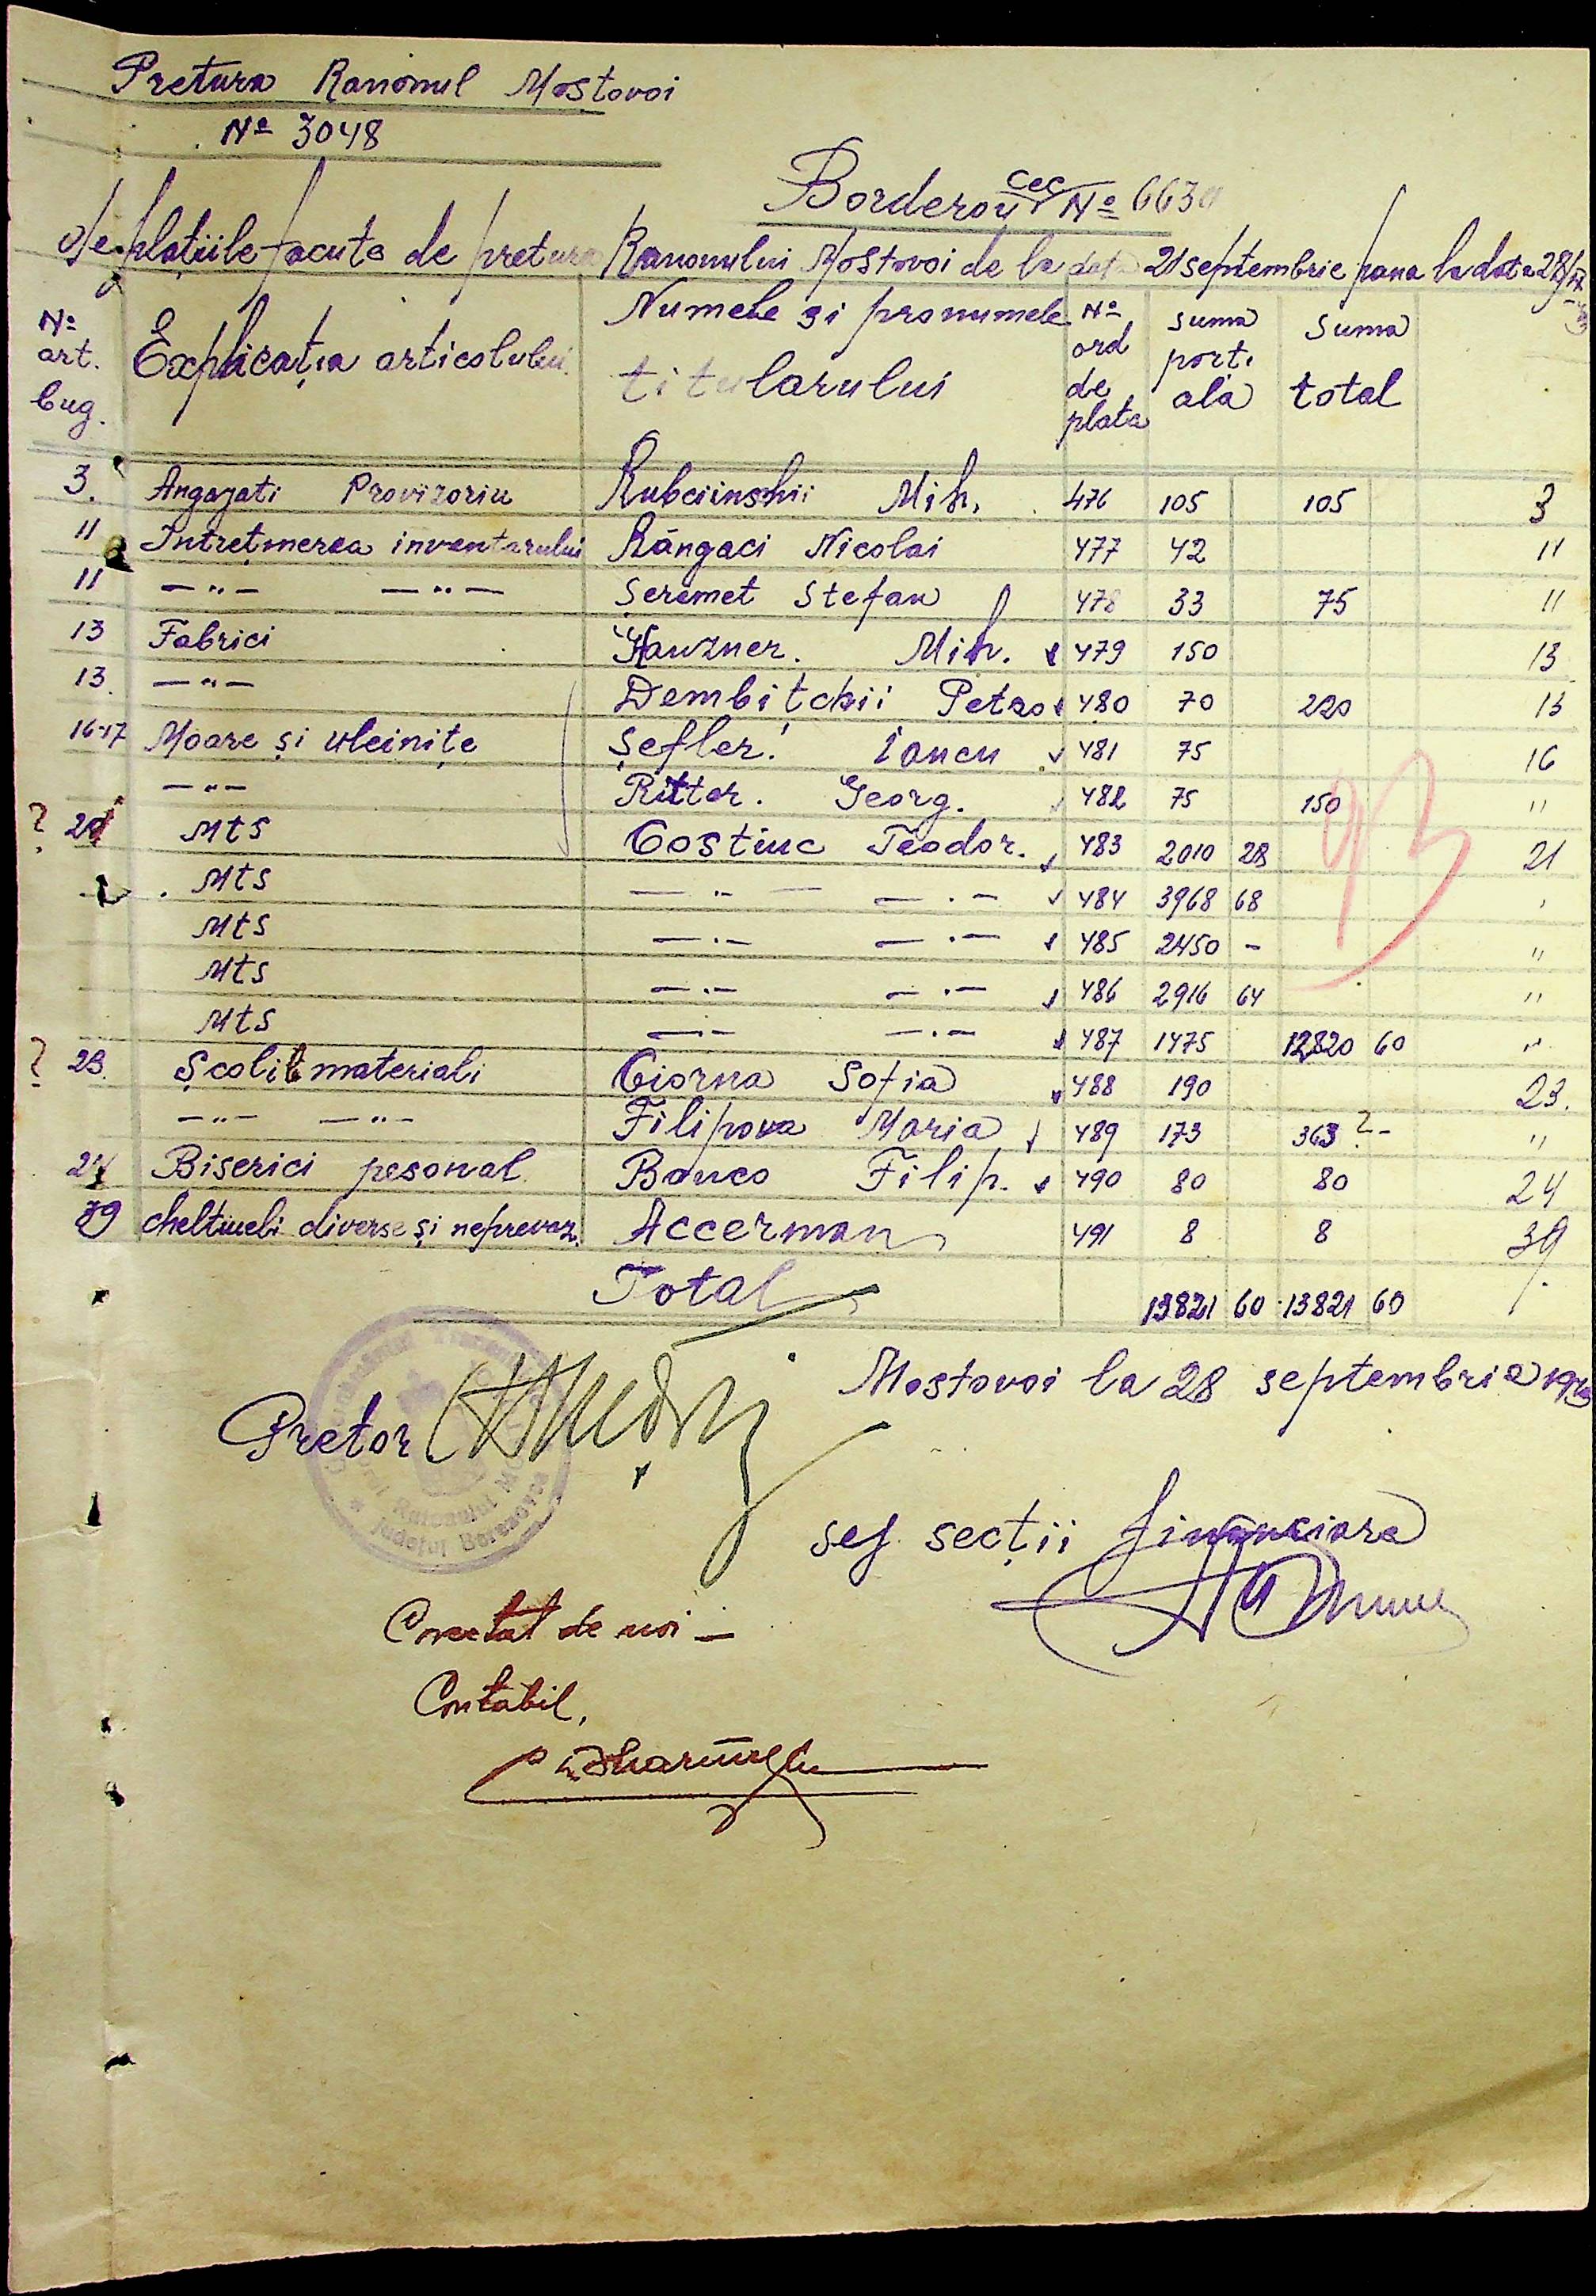 Pretura Raionul Mostovoi
Nº 3048
Borderou cec Nº 6630
de platiile facute de pretura Raionului Mostovoi de la data 21 septembrie pana la data 28/IX
Nº art. bug. Explicația articolului Numele și pronumele titularului Nº ord de plata suma porți ala suma total
3. Angajati Provizoriu Rubciinschii Mih. 476 105 105 3
11 Intreținerea inventarului Rângaci Nicolai 477 42 11
11 —"— —"— Șeremet Stefan 478 33 75 11
13 Fabrici Hauzner. Mih. 479 150 13
13. —"— Dembitchii Petro 480 70 220 13
16-17 Moare și uleinițe Șefler. Iancu 481 75 16
—"— Ritter. Georg. 482 75 150 "
? 21 Mts Costiuc Teodor. 483 2010 28 21
Mts —"— —"— 484 3968 68
Mts —"— —"— 485 2450 - "
Mts —"— —"— 486 2916 64 "
Mts —"— —"— 487 1475 12820 60 "
? 23. Școli materiali Ciorna Sofia 488 190 23.
—"— —"— Filipova Maria 489 173 363 ?- "
24 Biserici pesonal Banco Filip. 490 80 80 24
39 cheltueli diverse și neprevaz. Accerman 491 8 8 39
Total 13821 60 13821 60
93
Mostovoi la 28 septembrie 1943
Pretor
Raionului
Judetul Berezovca
sef secții financiara
Corectat de noi —
Contabil,